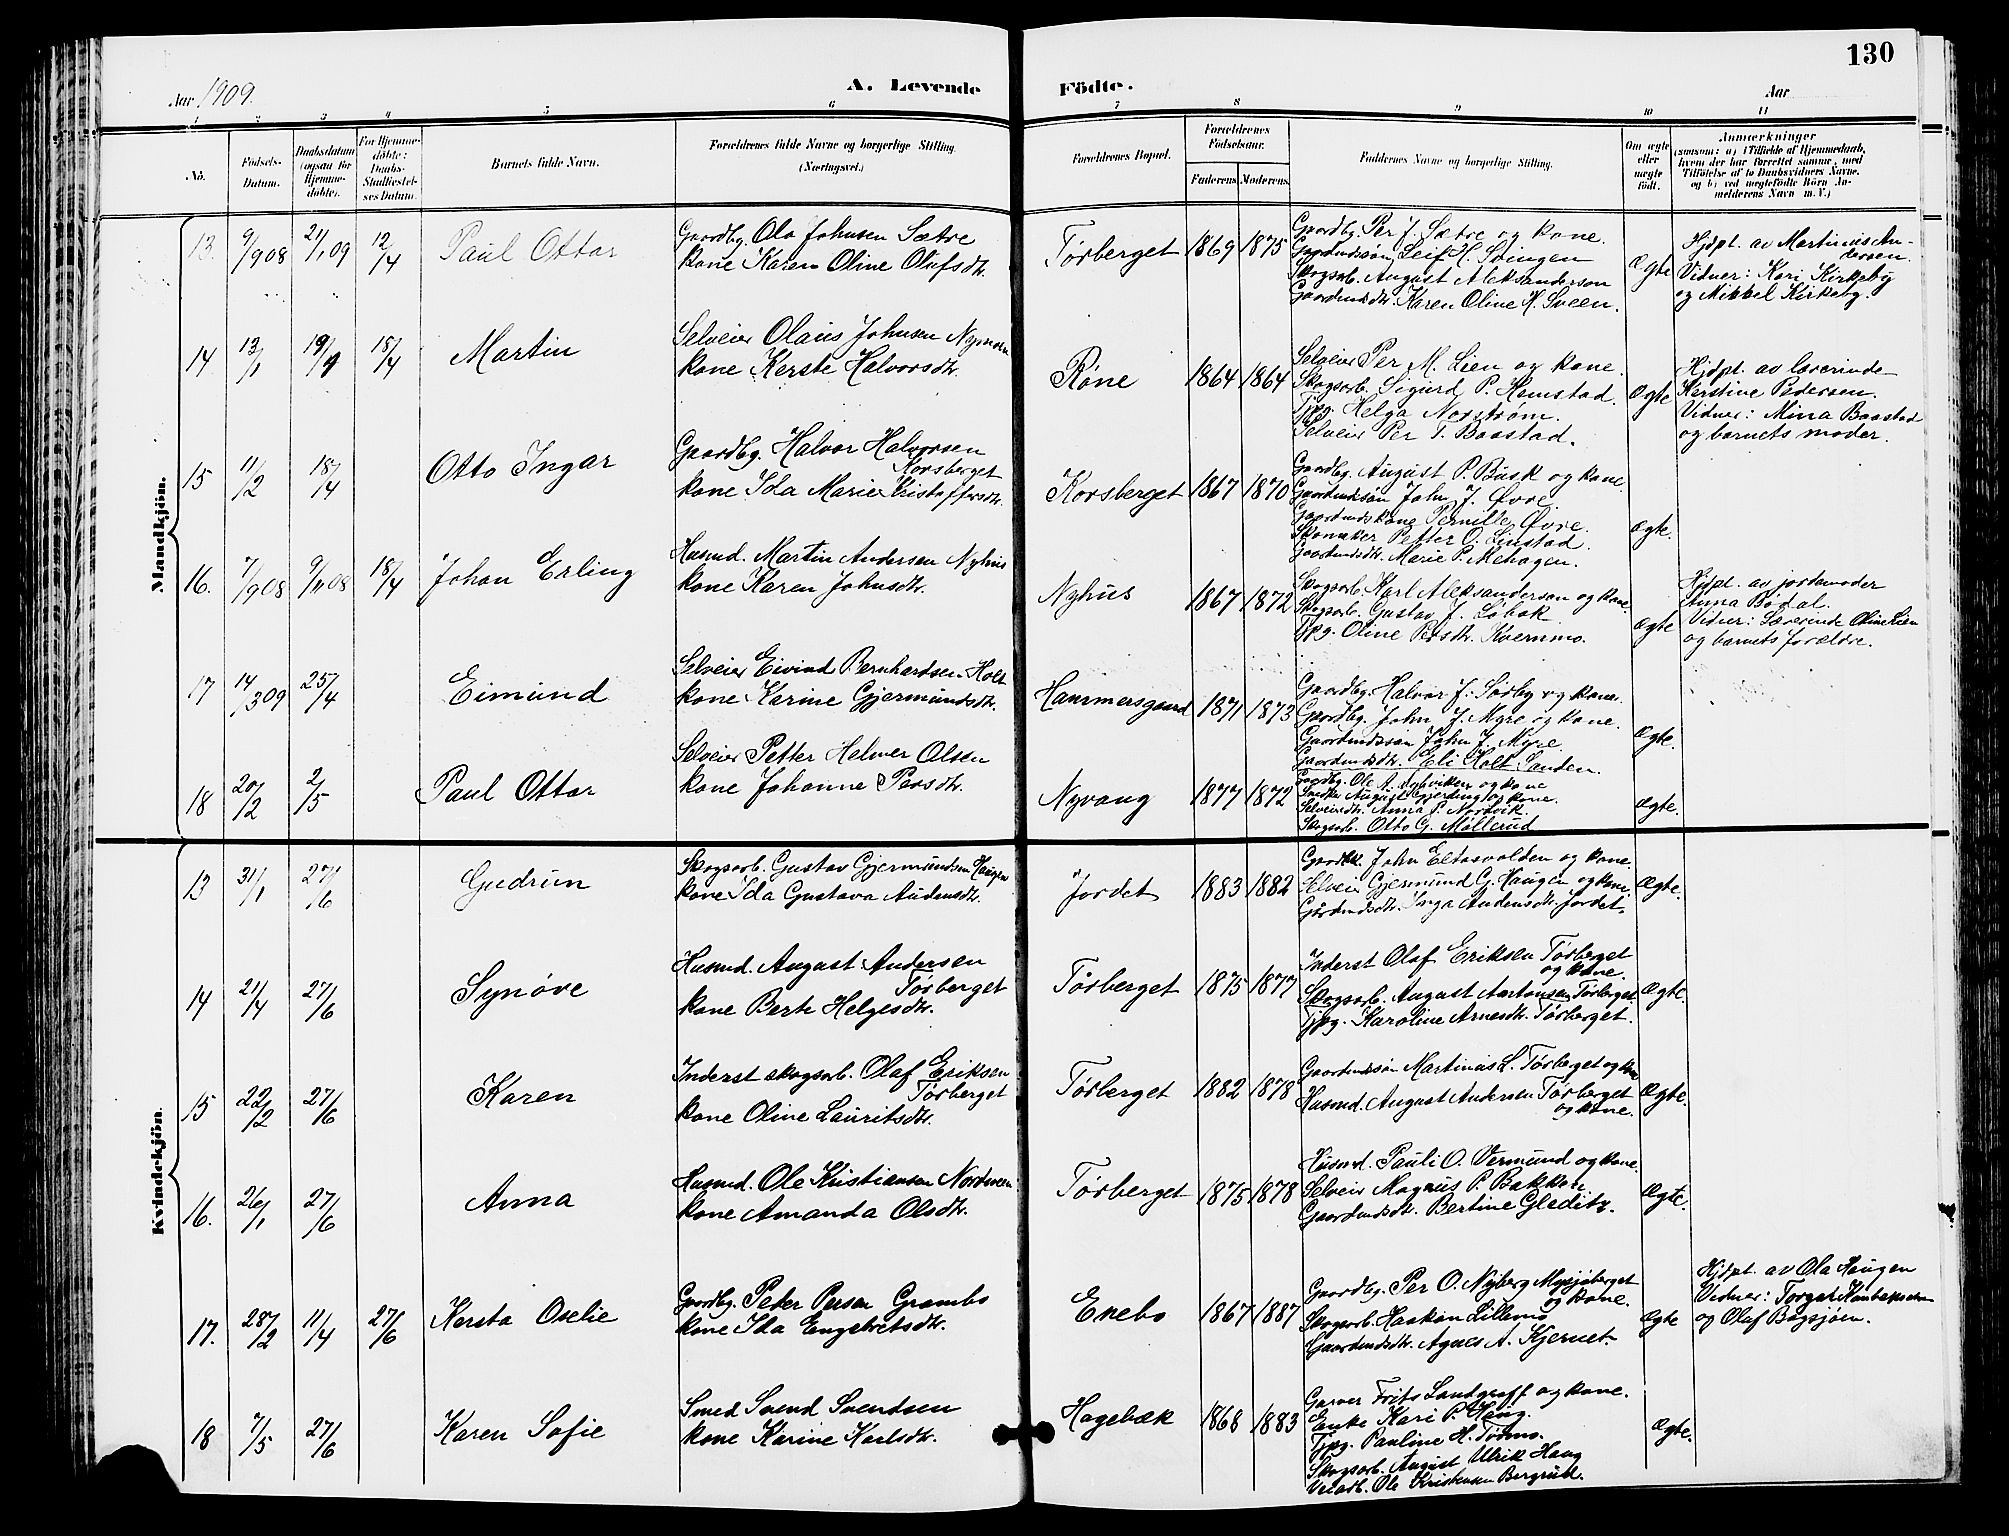 130
Aar 1909.
A. Levende
Födte.
Aar
1 2 3 4 5 6 7 8 9 10 11
No.
Födsels-Datum.
Daabsdatum (ogsaa for Hjemme-døbte).
For Hjemme-døbte: Daabs-Stadfæstel-ses Datum.
Barnets fulde Navn.
Forældrenes fulde Navne og borgerlige Stilling. (Næringsvei.)
Forældrenes Bopæl.
Forældrenes Födselsaar.
Faderens. Moderens.
Faddernes Navne og borgerlige Stilling.
Om ægte eller uægte födt.
Anmærkninger
(saasom: a) i Tilfælde af Hjemmedaab, hvem der har forrettet samme, med Tilföielse af to Daabsvidners Navne, og b) ved uægtefödte Börn An-melderens Navn m. V.)
Mandkjön.
13. 9/9 08 21/1 09 12/4 Paul Ottar
Gaardbg. Ola Johnsen Sætre
kone Karen Oline Olufsdtr.
Törberget 1869 1875
Gaardbg. Per J. Sætre og kone.
Gaardmdssön Leif H. Støingen
Skogsarb. August Aleksanderson
Gaardmdsdtr. Karen Oline H. Sveen.
Ægte
Hjdpt. av Martinius An-
dersen.
Vidner: Kari Kirkeby
og Mikkel Kirkeby.
14 13/1 19/1 18/4 Martin
Selveier Olaus Johnsen Nymoen
kone Kerste Halvorsdtr.
Röne 1864 1864
Selveier Per M. Lien og kone.
Skogsarb. Sigurd P. Hemstad.
Tjpg. Helga Norström.
Selveier Per T. Baastad.
Ægte
Hjdpt. av lærerinde
Kerstine Pedersen.
Vidner: Mina Baastad
og barnets moder.
15 11/2 18/4 Otto Ingar
Gaardbg. Halvor Halvorsen
Korsberget
kone Ida Marie Kristoffersdtr.
Korsberget 1867 1870
Gaardbg. August P. Busk og kone.
Gaardmdssön John J. Øvre.
Gaardmandskone Pernille Øvre.
Skomaker Petter O. Linstad.
Gaardmdsdtr. Marie P. Mehagen.
Ægte.
16. 7/9 08 9/11 08 18/4 Johan Erling
Husmd. Martin Andersen Nyhus
kone Karen Johnsdtr.
Nyhus 1867 1872
Skogsarb. Karl Aleksanderson og kone.
Skogsarb. Gustav J. Löbak
Tjpg. Oline Persdtr. Kvernmo.
Ægte
Hjdpt. av jordemoder
Anna Bödal.
Vidner: Lærerinde Oline Lien
og barnets forældre.
17 14/3 09 25/4 Eimund
Selveier Eivind Bernhardsen Holt
kone Karine Gjermundsdtr.
Hammersgaard 1871 1873
Gaardbg. Halvor J. Sörby og kone.
Gaardbg. John J. Myre og kone.
Gaardmdssön John J. Myre.
Gaardmdsdtr. Eli Holt Sanden.
Ægte.
18 20/2 2/5 Paul Ottar
Selveier Petter Helmer Olsen
kone Johanne Persdtr.
Nyvang 1877 1872
Gaardbg. Ole A. Nylviken og kone
Smedm. August Gjerding og kone.
Selveierdtr. Anna P. Nordvik.
Skogsarb. Otto G. Möllerud
Ægte.
Kvindekjön.
13 31/1 27/6 Gudrun
Skogsarb. Gustav Gjermundsen Haugen
kone Ida Gustava Audensdtr.
Jordet 1883 1882
Gaardbk. John Eltasvolden og kone.
Selveier Gjermund G. Haugen og kone.
Gårdmdsdtr. Inga Audensdtr. Jordet.
Ægte.
14 21/4 27/6 Synöve
Husmd. August Andersen
Törberget
kone Berte Helgesdtr.
Törberget 1875 1877
Inderst Olaf Eriksen Törberget
og kone.
Skogsarb. August Aastansen Törberget
Tjpg. Karoline Arnesdtr. Törberget.
Ægte.
15 22/2 27/6 Karen
Inderst skogsarb. Olaf Eriksen
Törberget
kone Oline Lauritsdtr.
Törberget 1882 1878
Gaardmdssön Martinius L. Törberget og kone
Husmd. August Andersen Törberget
og kone.
Ægte.
16. 26/1 27/6 Anna
Husmd. Ole Kristiansen Nordmoen
kone Amanda Olsdtr.
Törberget 1875 1878
Husmd. Pauli O. Vermund og kone.
Selveier Magnus P. Bakken
Gaardmdsdtr. Bertine Gleditz.
Ægte.
17. 28/2 11/4 27/6 Kersta Oselie
Gaardbg. Peter Persen Grambo
kone Ida Engebretsdtr.
Enebo 1867 1887
Gaardbg. Per O. Nyberg Mysjöberget
og kone.
Skogsarb. Haakon Lillemo
Gaardmdsdtr. Agnes A. Kjernet.
Ægte
Hjdpt. av Ola Haugen
Vidner: Torger
og Olaf Bagsjöen.
18 7/5 27/6 Karen Sofie
Smed Svend Svendsen
kone Karine Karlsdtr.
Hagebæk 1868 1883
Garver Frits Landgraff og kone.
Enke Kari P. Haug.
Tjpg. Pauline H. Tömo.
Skogsarb. August Ulrik Haug
Veiarb. Ole Kristensen Bergrud.
Ægte.